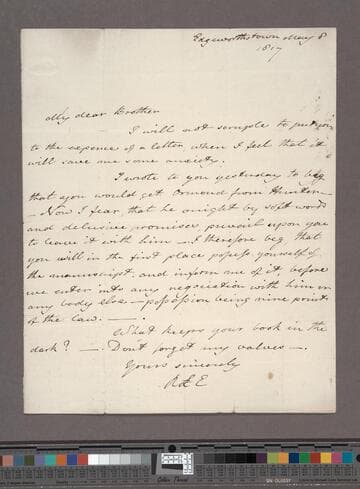 Edgeworthstown May 8
1817
My dear Brother
I will not scruple to put you
to the expence of a letter, when I feel that it
will save me some anxiety.
I wrote to you yesterday to beg
that you would get Ormond from Hunter —
— Now I fear that he might by soft words
and delusive promises, prevail upon you
to leave it with him — I therefore beg that
you will in the first place possess yourself of
the manuscript, and inform me of it before
we enter into any negociation with him or
any body else — possession being nine points
of the law. — .
What keeps your book in the
dark? — . Don't forget my valves — .
Yours sincerely
RLE